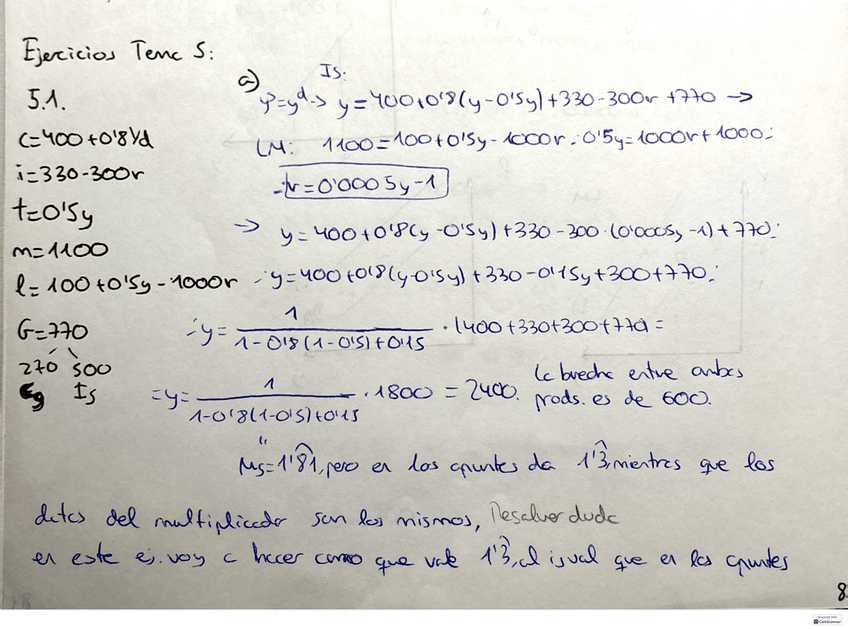 Ejercicios Tema 5:
5.1.
c=400+0'8Yd
i=330-300r
t=0'5y
m=1100
l=100+0'5y-1000r
G=770
270 500
Cg Is
a) Is.
yº=yᵈ-> y=400+0'8(y-0'5y)+330-300r+770 ->
LM: 1100=100+0'5y-1000r ∴ 0'5y=1000r+1000 ∴
∴ r=0'0005y-1
-> y=400+0'8(y-0'5y)+330-300·(0'0005y-1)+770 ∴
∴ y=400+0'8(y-0'5y)+330-0'15y+300+770 ∴
∴ y= 1/(1-0'8(1-0'5)+0'15) · (400+330+300+770) =
=y= 1/(1-0'8(1-0'5)+0'15) · 1800 = 2400. la brecha entre ambas
prods. es de 600.
"
μs=1'81, pero en los apuntes da 1'3, mientras que los
datos del multiplicador son los mismos, Resolver duda
en este ej. voy a hacer como que vale 1'3, al igual que en los apuntes
8
Scanned with
CamScanner